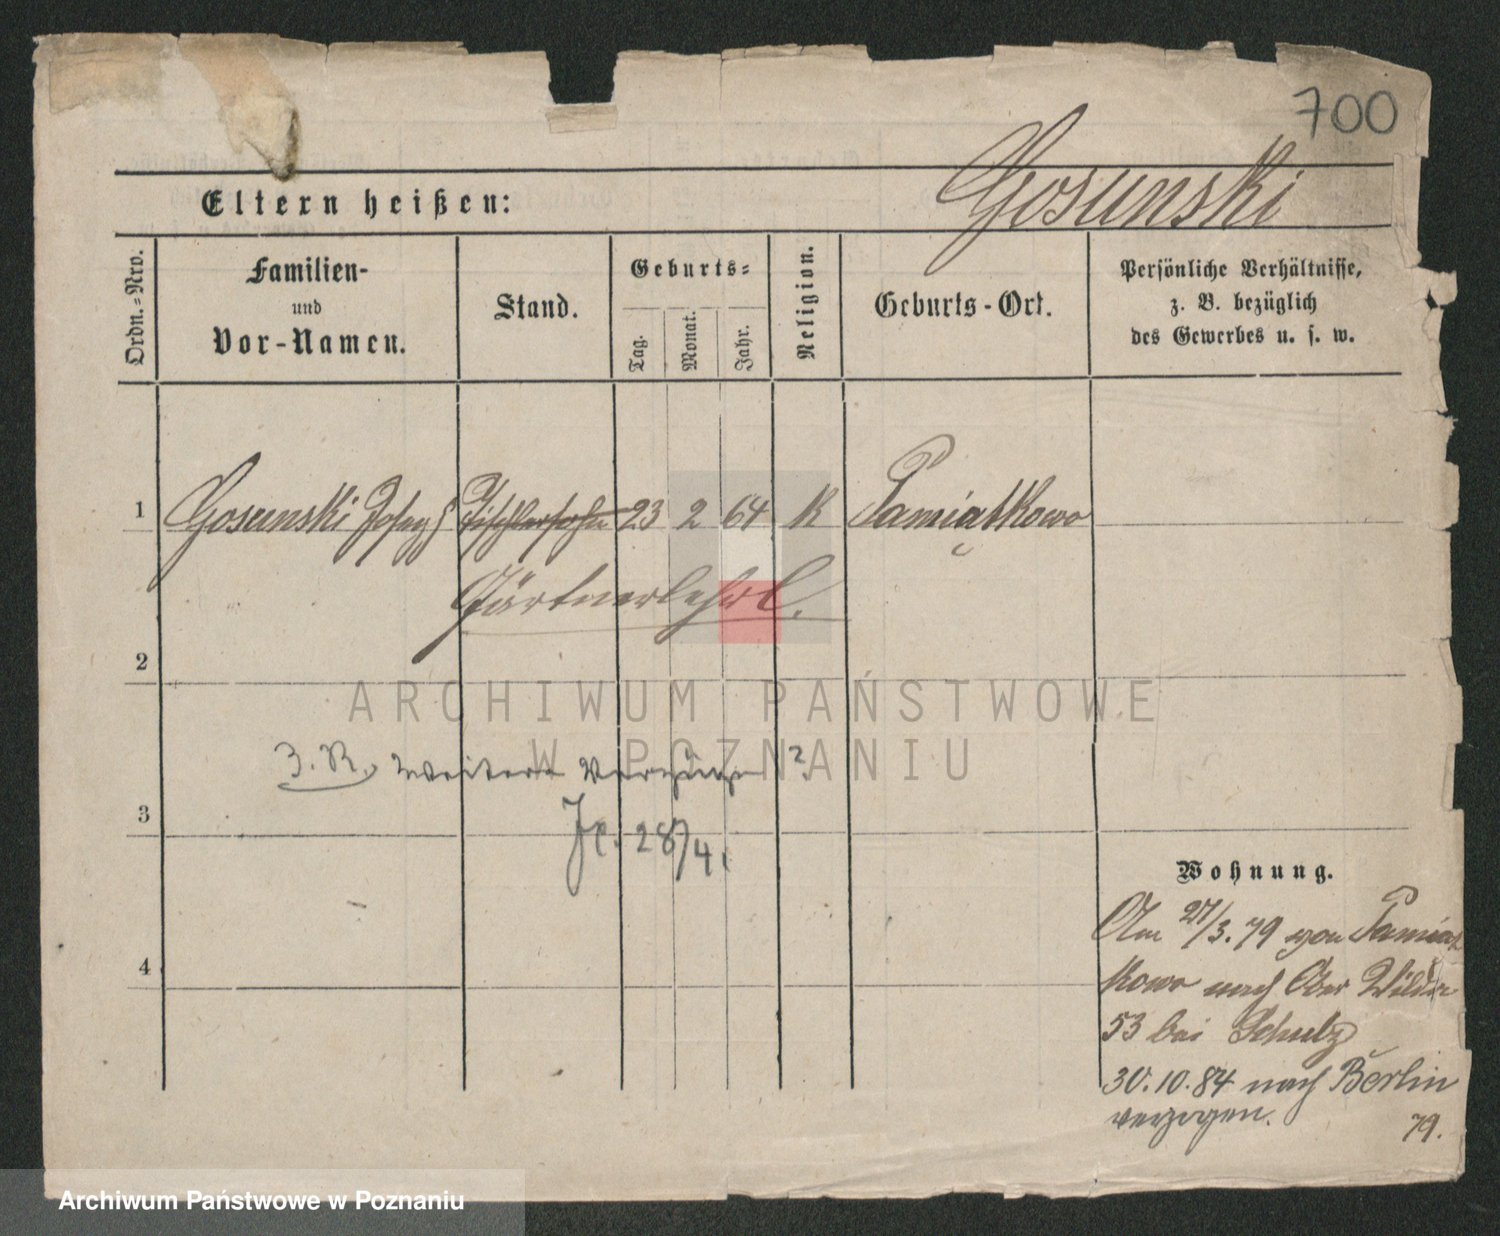 700
Gosunski
Eltern heißen:
Ordn.-Nro.
Familien-
und
Vor-Namen.
Stand.
Geburts-
Tag.
Monat.
Jahr.
Religion.
Geburts-Ort.
Persönliche Verhältnisse,
z. B. bezüglich
des Gewerbes u. s. w.
1 Gosunski Joseph Tischlersohn 23 2 64 K Pamiątkowo
Gärtnerlehrl.
2
ARCHIWUM PAŃSTWOWE
W POZNANIU
Z. R. weitere ?
28/4.
3
Wohnung.
Am 27/3. 79 von Pamiat
kowo nach Ober Wilda
53 bei Schulz
4
30.10.84 nach Berlin
verzogen. 79.
Archiwum Państwowe w Poznaniu